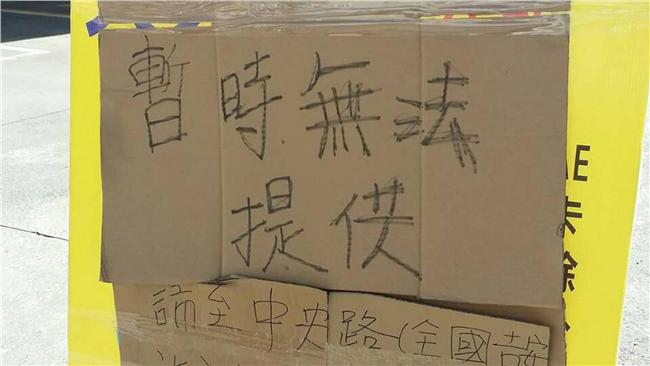 暫時無法
提供
請至中央路(全國
E
卡
除